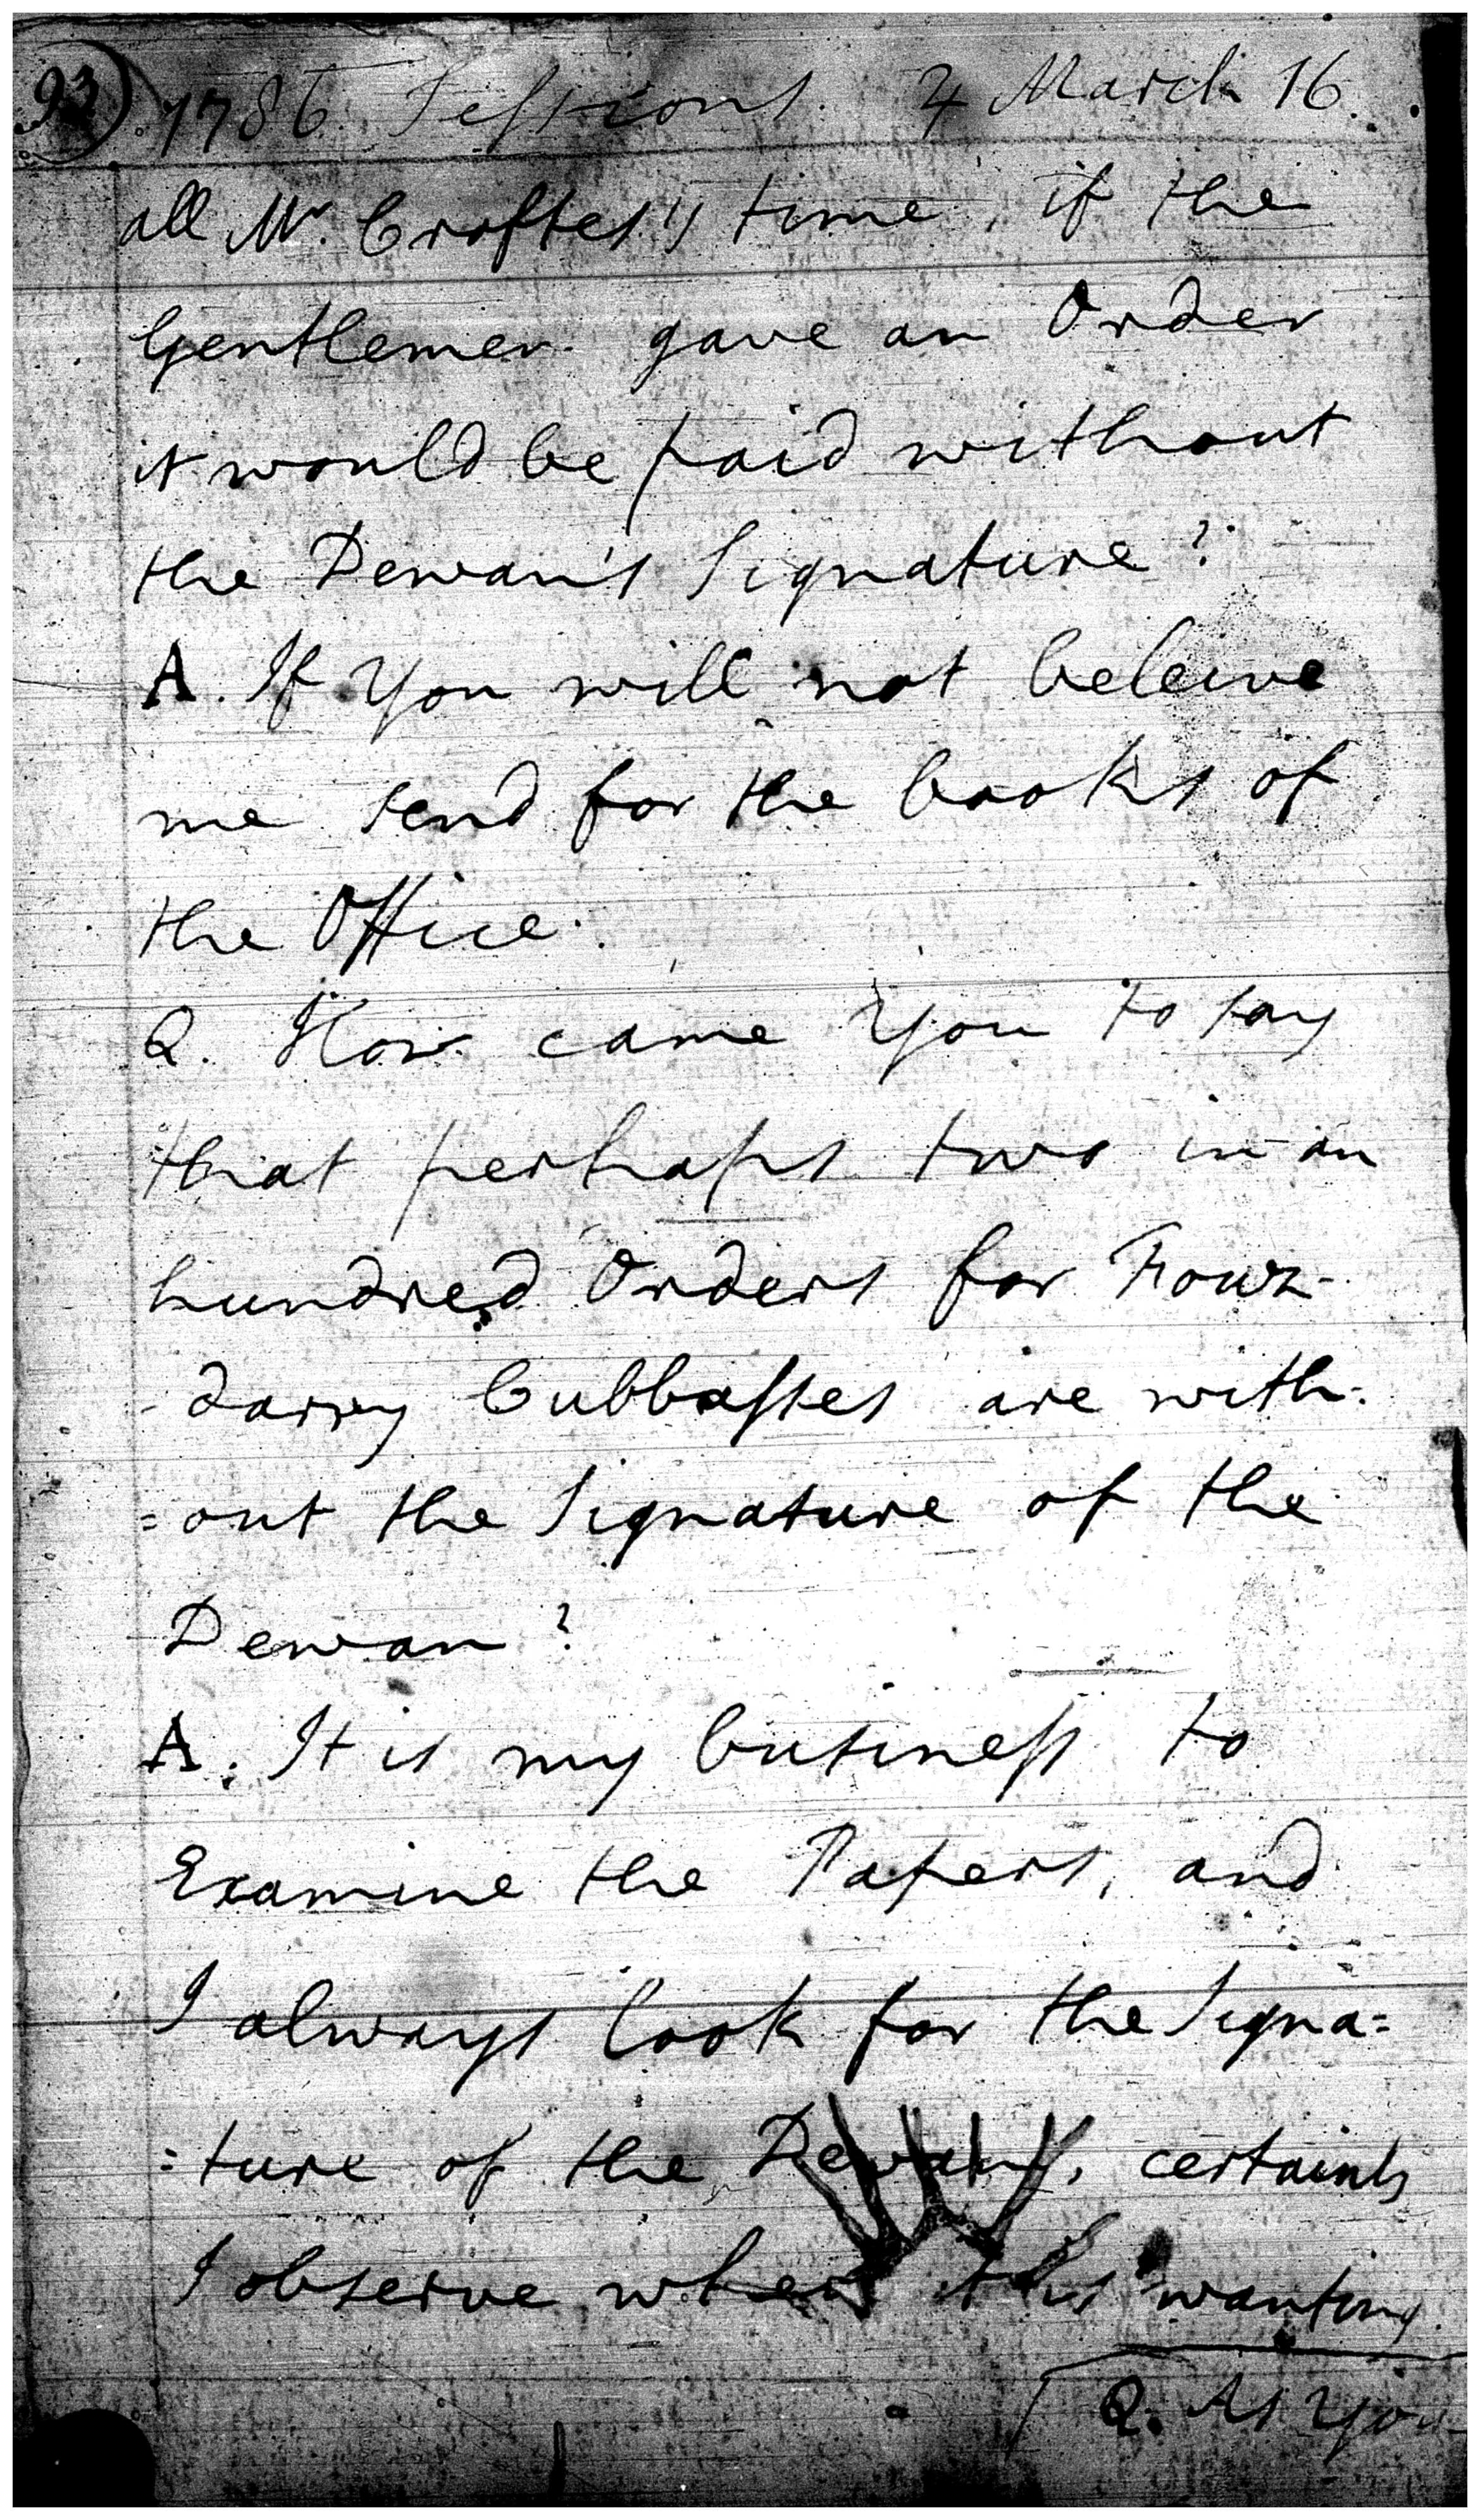 93) 1786. Sessions. 4 March 16.
all Mr. Croftes's time, if the
Gentlemen gave an Order
it would be paid without
the Dewan's Signature?
A. If You will not beleive
me send for the books of
the Office.
Q. How came You to say
that perhaps two in an
hundred Orders for Fouz-
-darry Cubbasses are with-
=out the Signature of the
Dewan?
A. It is my business to
Examine the Papers, and
I always look for the Signa=
=ture of the Dewans, certainly
I observe when it is wanting.
Q. As You